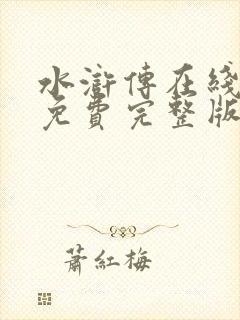 水滸傳在綫
免費完整版
蕭紅梅